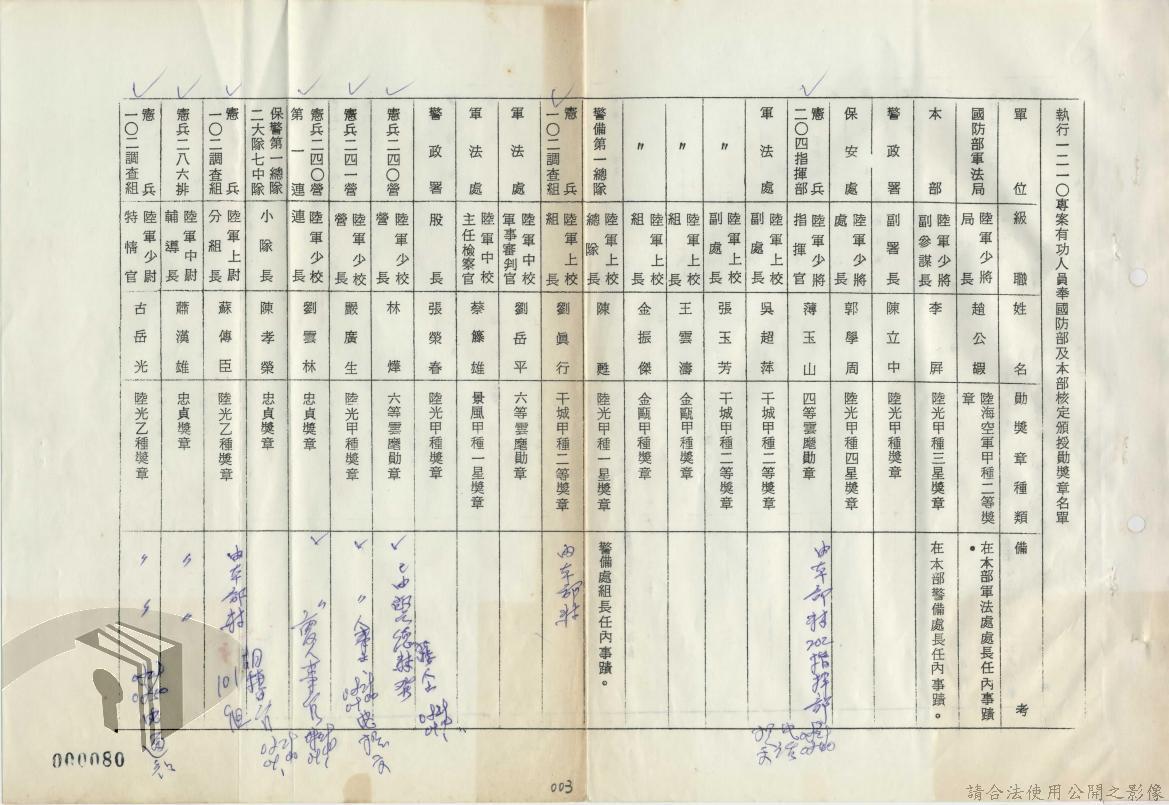 執行一二一〇專案有功人員奉國防部及本部核定頒授勛獎章名單
單位 級職 姓名 勛獎章種類 備考
國防部軍法局 陸軍少將局長 趙公嘏 陸海空軍甲種二等獎章 在本部軍法處處長任內事蹟。
本部 陸軍少將副參謀長 李屏 陸光甲種三星獎章 在本部警備處長任內事蹟。
警政署 副署長 陳立中 陸光甲種獎章
保安處 陸軍少將處長 郭學周 陸光甲種四星獎章
憲兵二〇四指揮部 陸軍少將指揮官 薄玉山 四等雲麾勛章 由本部轉202指揮部
軍法處 陸軍上校副處長 吳超萍 干城甲種二等獎章
〃 陸軍上校副處長 張玉芳 干城甲種二等獎章
〃 陸軍上校組長 王雲濤 金甌甲種獎章
〃 陸軍上校組長 金振傑 金甌甲種獎章
警備第一總隊 陸軍上校總隊長 陳甦 陸光甲種一星獎章 警備處組長任內事蹟。
憲兵一〇二調查組 陸軍上校組長 劉眞行 干城甲種二等獎章 由本部轉
軍法處 陸軍中校軍事審判官 劉岳平 六等雲麾勛章
軍法處 陸軍中校主任檢察官 蔡籐雄 景風甲種一星獎章
警政署 股長 張榮春 陸光甲種獎章
憲兵二四〇營 陸軍少校營長 林燁 六等雲麾勛章
憲兵二四一營 陸軍少校營長 嚴廣生 陸光甲種獎章 〃
憲兵二四〇營第一連 陸軍少校連長 劉雲林 忠貞獎章 〃
保警第一總隊二大隊七中隊 小隊長 陳孝榮 忠貞獎章
憲兵一〇二調查組 陸軍上尉分組長 蘇傳臣 陸光乙種獎章 由本部轉
憲兵二八六排 陸軍中尉輔導長 蕭漢雄 忠貞獎章 〃 〃
憲兵一〇二調查組 陸軍少尉特情官 古岳光 陸光乙種獎章 〃 〃
000080
003
請合法使用公開之影像